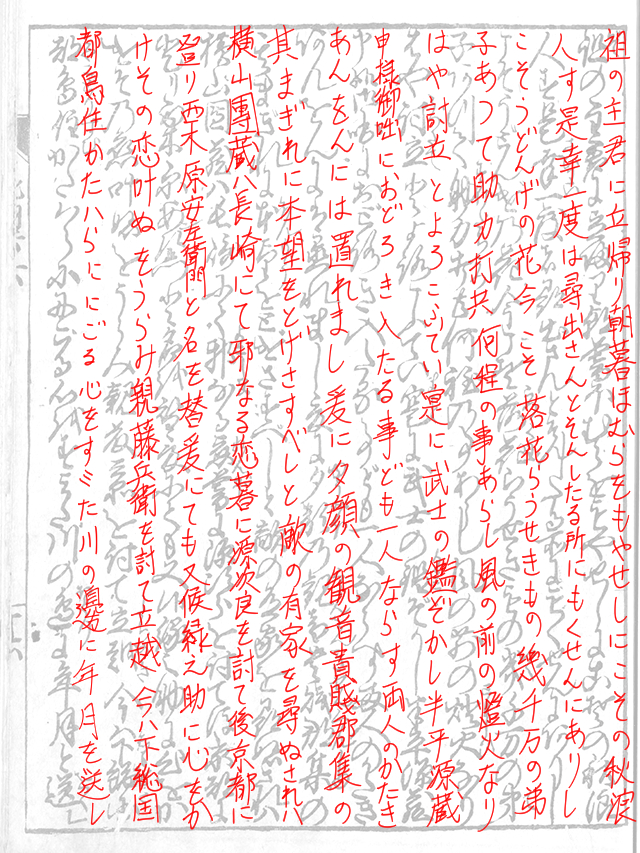 祖の主君に立帰り朝暮ほむらをもやせしにこその秋浪
人す是幸一度は尋出さんとそんしたる所にもくせんにありし
こそうどんげの花今こそ落花らうせきもの幾千万の弟
子あつて助力打共何程の事あらし風の前の燈火なり
はや討立とよろこふてい寔に武士の鑑ぞかし半平源蔵
申様御咄におどろき入たる事ども一人ならす両人のかたき
あんをんには置れまし爰に夕顔の観音貴賤郡集の
其まぎれに本望をとげさすべしと敵の有家を尋ぬされハ
横山團蔵ハ長崎にて邪なる恋暮に源次良を討て後京都に
登り西木原安左衛門と名を替爰にても又候緑之助に心をか
けその恋叶ぬをうらみ親藤兵衛を討て立越今ハ下総国
都鳥住かたハらににごる心をすミた川の邊に年月を送し